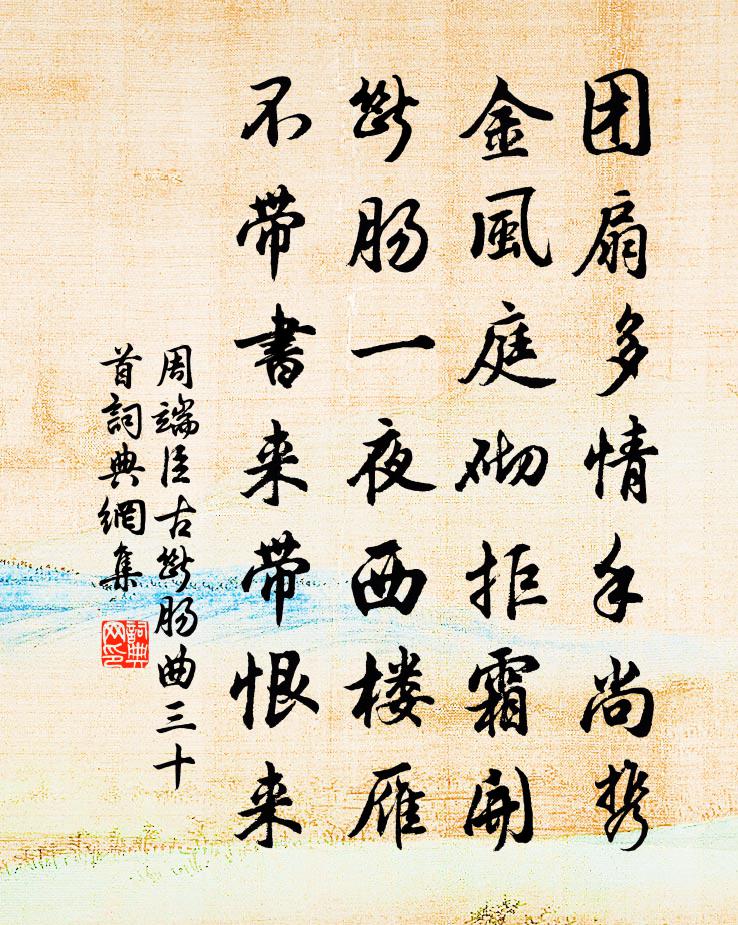 团扇多情手尚携
金風庭砌拒霜開
斷肠一夜西楼雁
不带書来带恨来
周端臣古斷肠曲三十
首詞典網集
詞典
网印